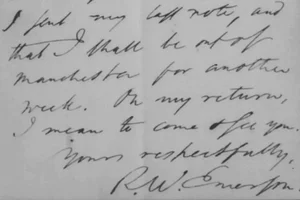 I sent my last note, and
that I shall be out of
manchester for another
week. On my return,
I mean to come & see you.
Yours respectfully,
R. W. Emerson.